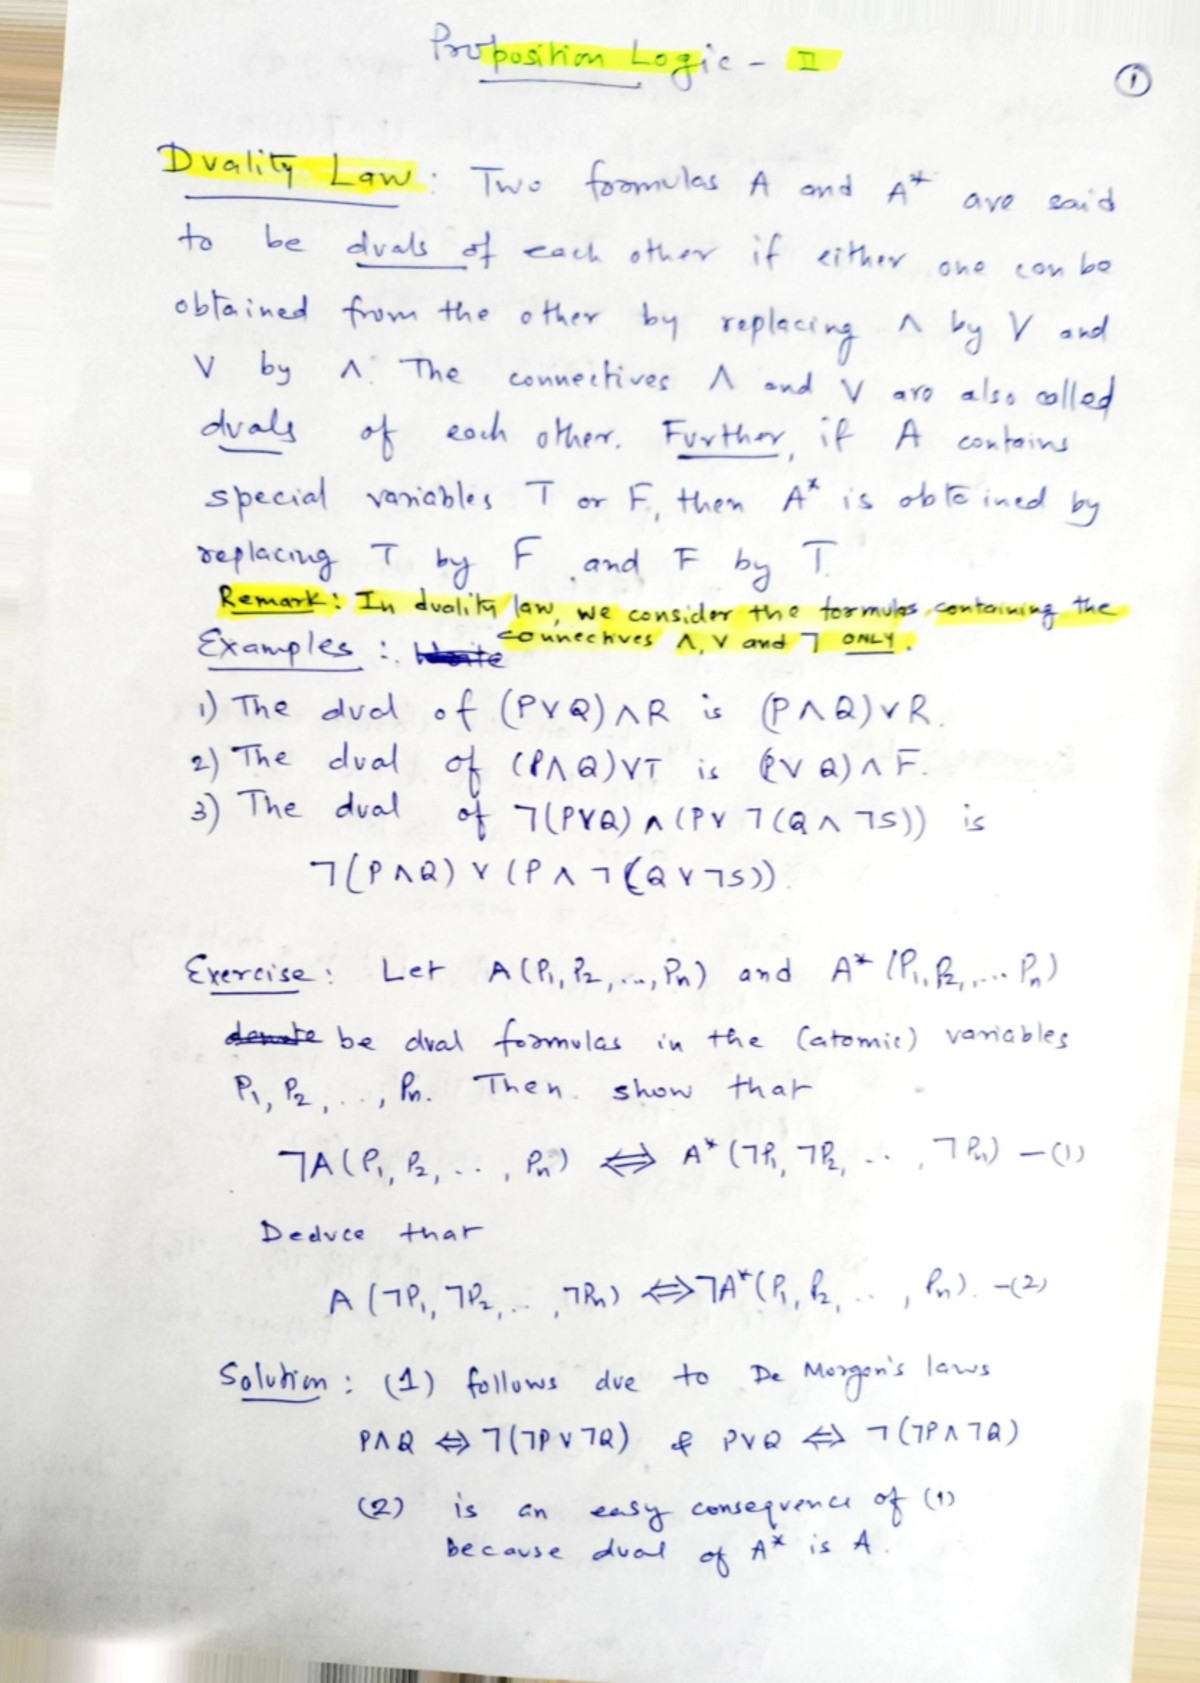 Proposition Logic - II
1
Duality Law : Two formulas A and A* are said
to be duals of each other if either one can be
obtained from the other by replacing ∧ by ∨ and
∨ by ∧. The connectives ∧ and ∨ are also called
duals of each other. Further, if A contains
special variables T or F, then A* is obtained by
replacing T by F and F by T.
Remark: In duality law, we consider the formulas containing the
connectives ∧, ∨ and ¬ ONLY.
Examples :.
1) The dual of (P∨Q)∧R is (P∧Q)∨R.
2) The dual of (P∧Q)∨T is (P∨Q)∧F.
3) The dual of ¬(P∨Q)∧(P∨¬(Q∧¬S)) is
¬(P∧Q)∨(P∧¬(Q∨¬S)).
Exercise : Let A(P₁, P₂, ..., Pₙ) and A*(P₁, P₂, ... Pₙ)
denote be dual formulas in the (atomic) variables
P₁, P₂, ..., Pₙ. Then show that
¬A(P₁, P₂, ..., Pₙ) ⇔ A*(¬P₁, ¬P₂, ..., ¬Pₙ) —(1)
Deduce that
A(¬P₁, ¬P₂, ..., ¬Pₙ) ⇔ ¬A*(P₁, P₂, ..., Pₙ). —(2)
Solution : (1) follows due to De Morgan's laws
P∧Q ⇔ ¬(¬P∨¬Q) & P∨Q ⇔ ¬(¬P∧¬Q)
(2) is an easy consequence of (1)
because dual of A* is A.